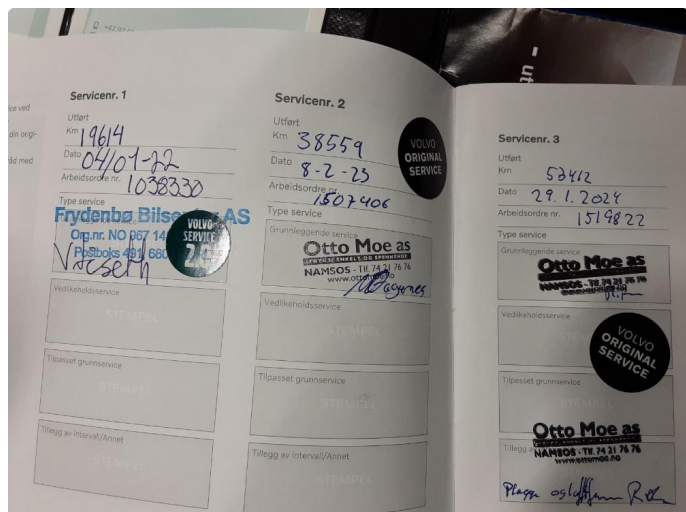 ice ved
din origi-
råd med
Servicenr. 1
Utført
Km 19614
Dato 04/01-22
Arbeidsordre nr. 1038330
Type service
Frydenbø Bilse AS
Org.nr. NO 967 14
Postboks 491 680
VOLVO
SERVICE
Vedlikeholdsservice
STEMPEL
Tilpasset grunnservice
STEMPEL
Tillegg av intervall/Annet
STEMPEL
Servicenr. 2
Utført
Km 38559
Dato 8-2-23
Arbeidsordre nr. 1507406
Type service
VOLVO
ORIGINAL
SERVICE
Grunnleggende service
Otto Moe as
NAMSOS - Tlf. 74 21 76 76
Vedlikeholdsservice
STEMPEL
Tilpasset grunnservice
STEMPEL
Tillegg av intervall/Annet
STEMPEL
- ut
Servicenr. 3
Utført
Km 53412
Dato 29.1.2024
Arbeidsordre nr. 1519822
Type service
Grunnleggende service
Otto Moe as
NAMSOS - Tlf. 74 21 76 76
Vedlikeholdsservice
VOLVO
ORIGINAL
SERVICE
Tilpasset grunnservice
Otto Moe as
NAMSOS - Tlf. 74 21 76 76
www.ottomoe.no